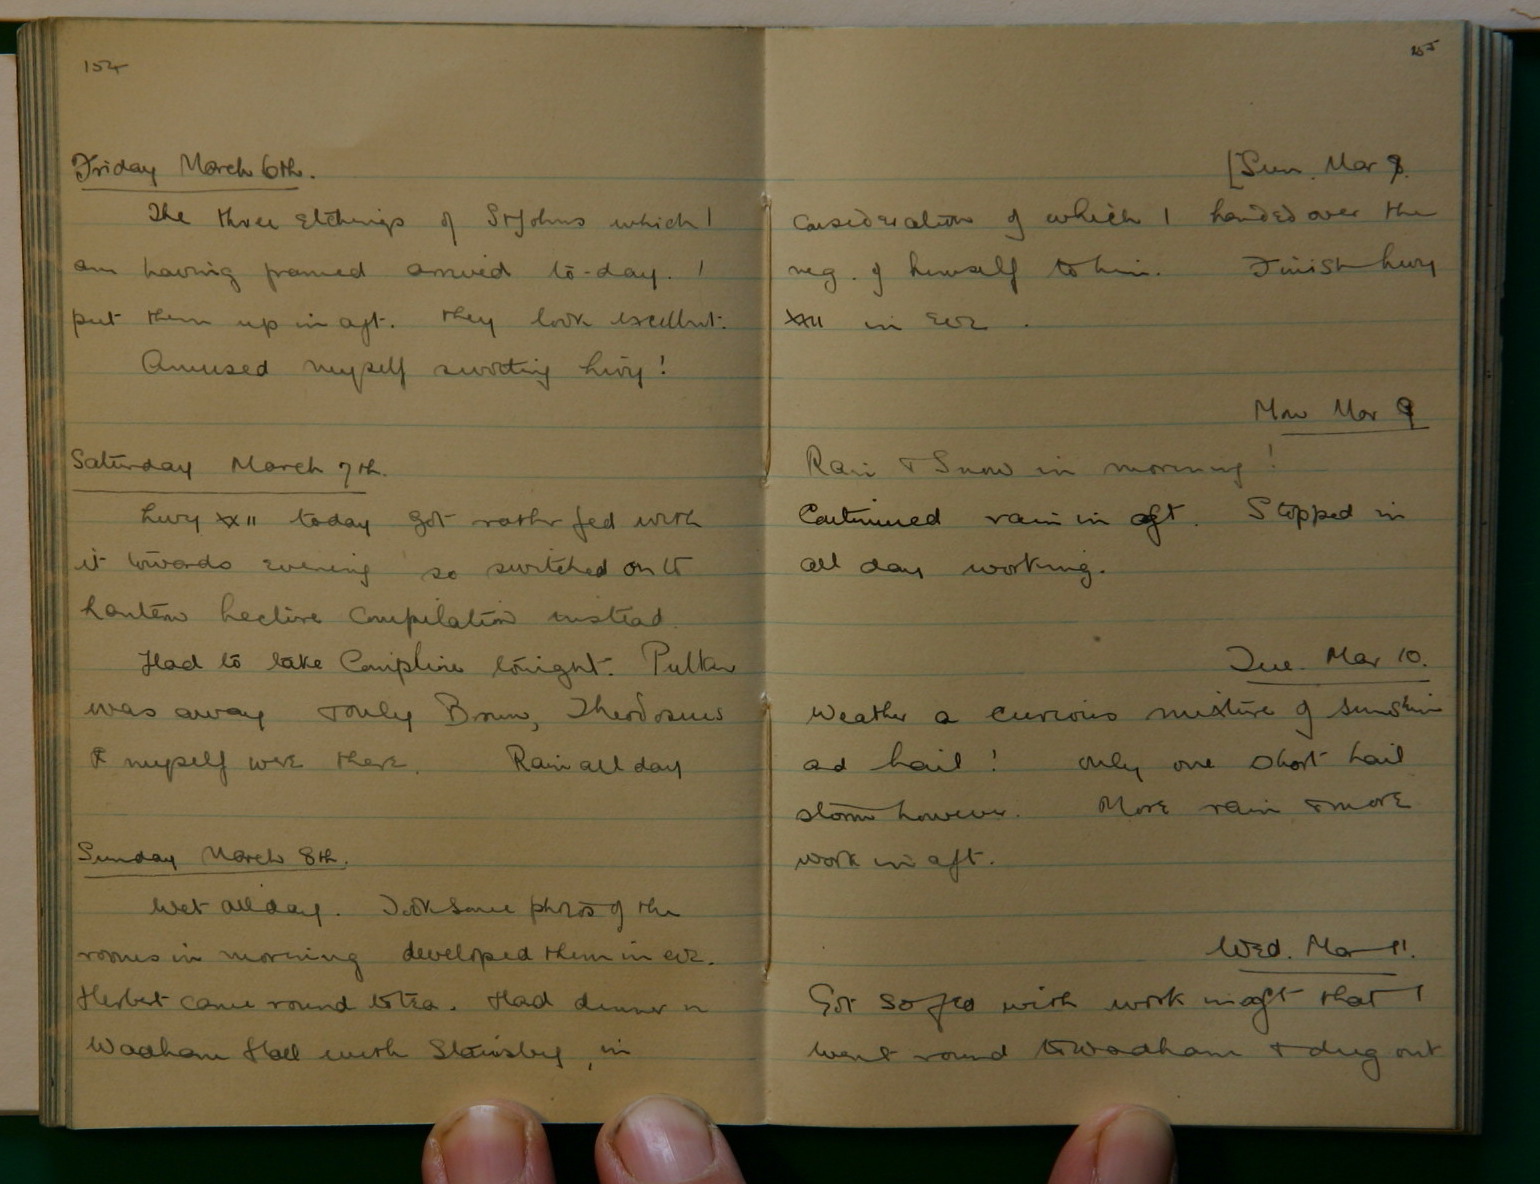 154
Friday March 6th.
The three etchings of St Johns which I
am having framed arrived to-day. I
put them up in aft. They look excellent.
Amused myself swotting Livy!
Saturday March 7th.
Livy XXII today got rather fed with
it towards evening so switched on to
Lantern Lecture Compilation instead.
Had to take Compline tonight. Pulker
was away & only Brown, Theodosius
& myself were there. Rain all day
Sunday March 8th.
Wet all day. Took some photos of the
rooms in morning developed them in eve.
Herbert came round to tea. Had dinner in
Wadham Hall with Stainsby, in
155
[Sun. Mar 8.
consideration of which I handed over the
neg. of himself to him. Finish Livy
XXII in eve.
Mon Mar 9
Rain & Snow in morning!
Continued rain in aft. Stopped in
all day working.
Tue. Mar 10.
Weather a curious mixture of sunshine
and hail! only one short hail
storm however. More rain & more
work in aft.
Wed. Mar 11.
Got so fed with work in aft that I
went round to Wadham & dug out